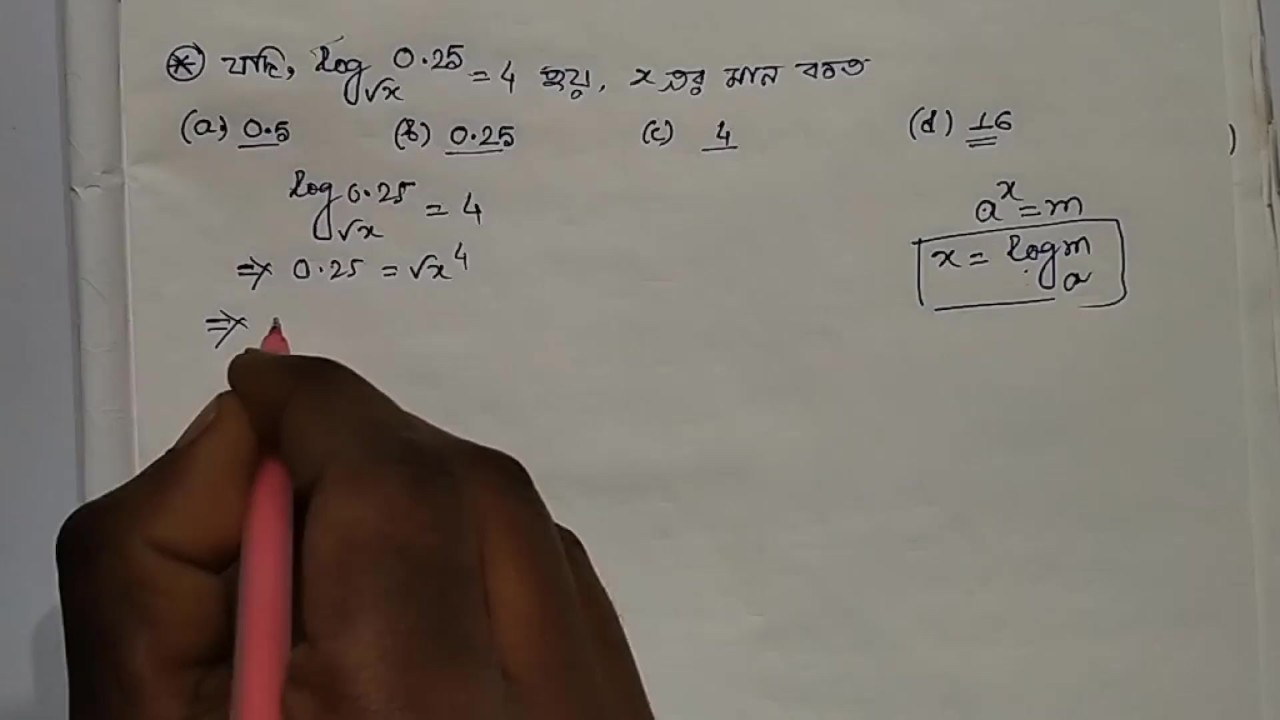 ⊛ যদি, log√x 0.25 = 4 হয়, x এর মান কত
(a) 0.5 (b) 0.25 (c) 4 (d) 16
log√x 0.25 = 4
⇒ 0.25 = √x⁴
⇒
aˣ = m
x = logₐ m
)